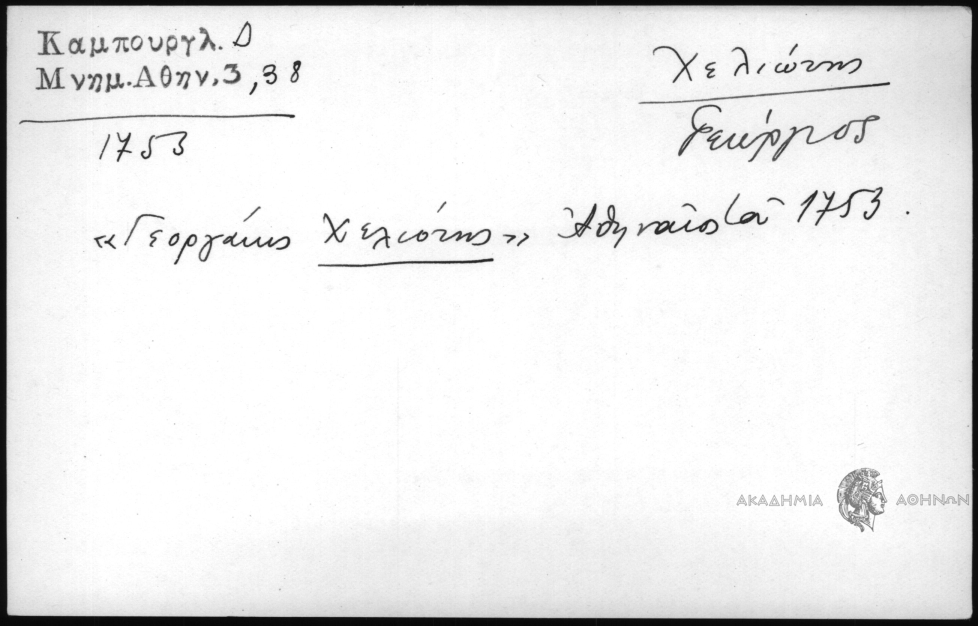 Καμπουργλ. Δ
Μνημ. Αθην. 3, 38
1753
Χελιώτης
Γεώργιος
«Γεοργάκις Χελιότης» Ἀθηναῖος 1753.
ΑΚΑΔΗΜΙΑ ΑΘΗΝΩΝ